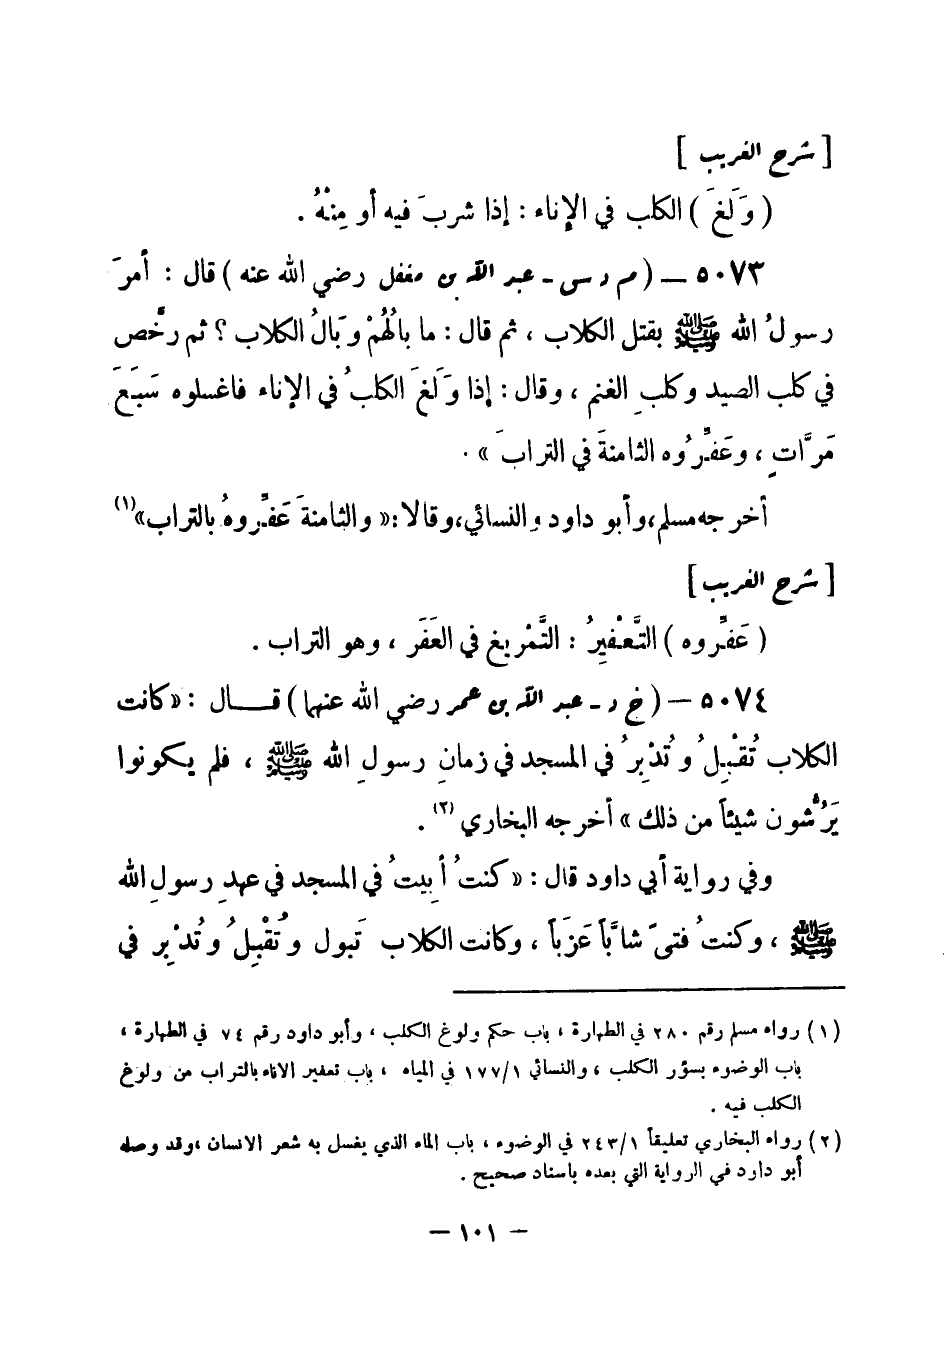 [ شرح الغريب ]
( وَلَغَ ) الكلب في الإناء : إذا شربَ فيه أو مِنْهُ .
٥٠٧٣ — ( م د س - عبد الله بن مغفل رضي الله عنه ) قال : أمرَ
رسولُ الله ﷺ بقتل الكلاب ، ثم قال : ما بالُهُمْ وَبَالُ الكلاب ؟ ثم رخَّص
في كلب الصيد وكلبِ الغنم ، وقال : إذا وَلَغَ الكلبُ في الإناء فاغسلوه سَبَعَ
مَرَّاتٍ ، وعَفِّرُوه الثامنةَ في الترابَ » .
أخرجه مسلم ،وأبو داود والنسائي ،وقالا :« والثامنةَ عَفِّروهُ بالتراب» (١)
[ شرح الغريب ]
( عَفِّروه ) التَّعْفِيرُ : التَّمْريغ في العَفَر ، وهو التراب .
٥٠٧٤ — ( خ د - عبد الله بن عمر رضي الله عنهما ) قـــال : « كانت
الكلاب تُقْبِلُ وتُدْبِرُ في المسجد في زمانِ رسولِ الله ﷺ ، فلم يكونوا
يَرُشُّون شيئاً من ذلك » أخرجه البخاري (٢) .
وفي رواية أبي داود قال : « كنتُ أبيتُ في المسجد في عهدِ رسولِ الله
ﷺ ، وكنتُ فتىً شاَّباً عَزَباً ، وكانت الكلاب تَبول وتُقْبِلُ وتُدْبِر في
(١) رواه مسلم رقم ٢٨٠ في الطهارة ، باب حكم ولوغ الكلب ، وأبو داود رقم ٧٤ في الطهارة ،
باب الوضوء بسؤر الكلب ، والنسائي ١٧٧/١ في المياه ، باب تعفير الاناء بالتراب من ولوغ
الكلب فيه .
(٢) رواه البخاري تعليقاً ٢٤٣/١ في الوضوء ، باب الماء الذي يغسل به شعر الانسان ،وقد وصله
أبو دارد في الرواية التي بعده باسناد صحيح .
— ١٠١ —